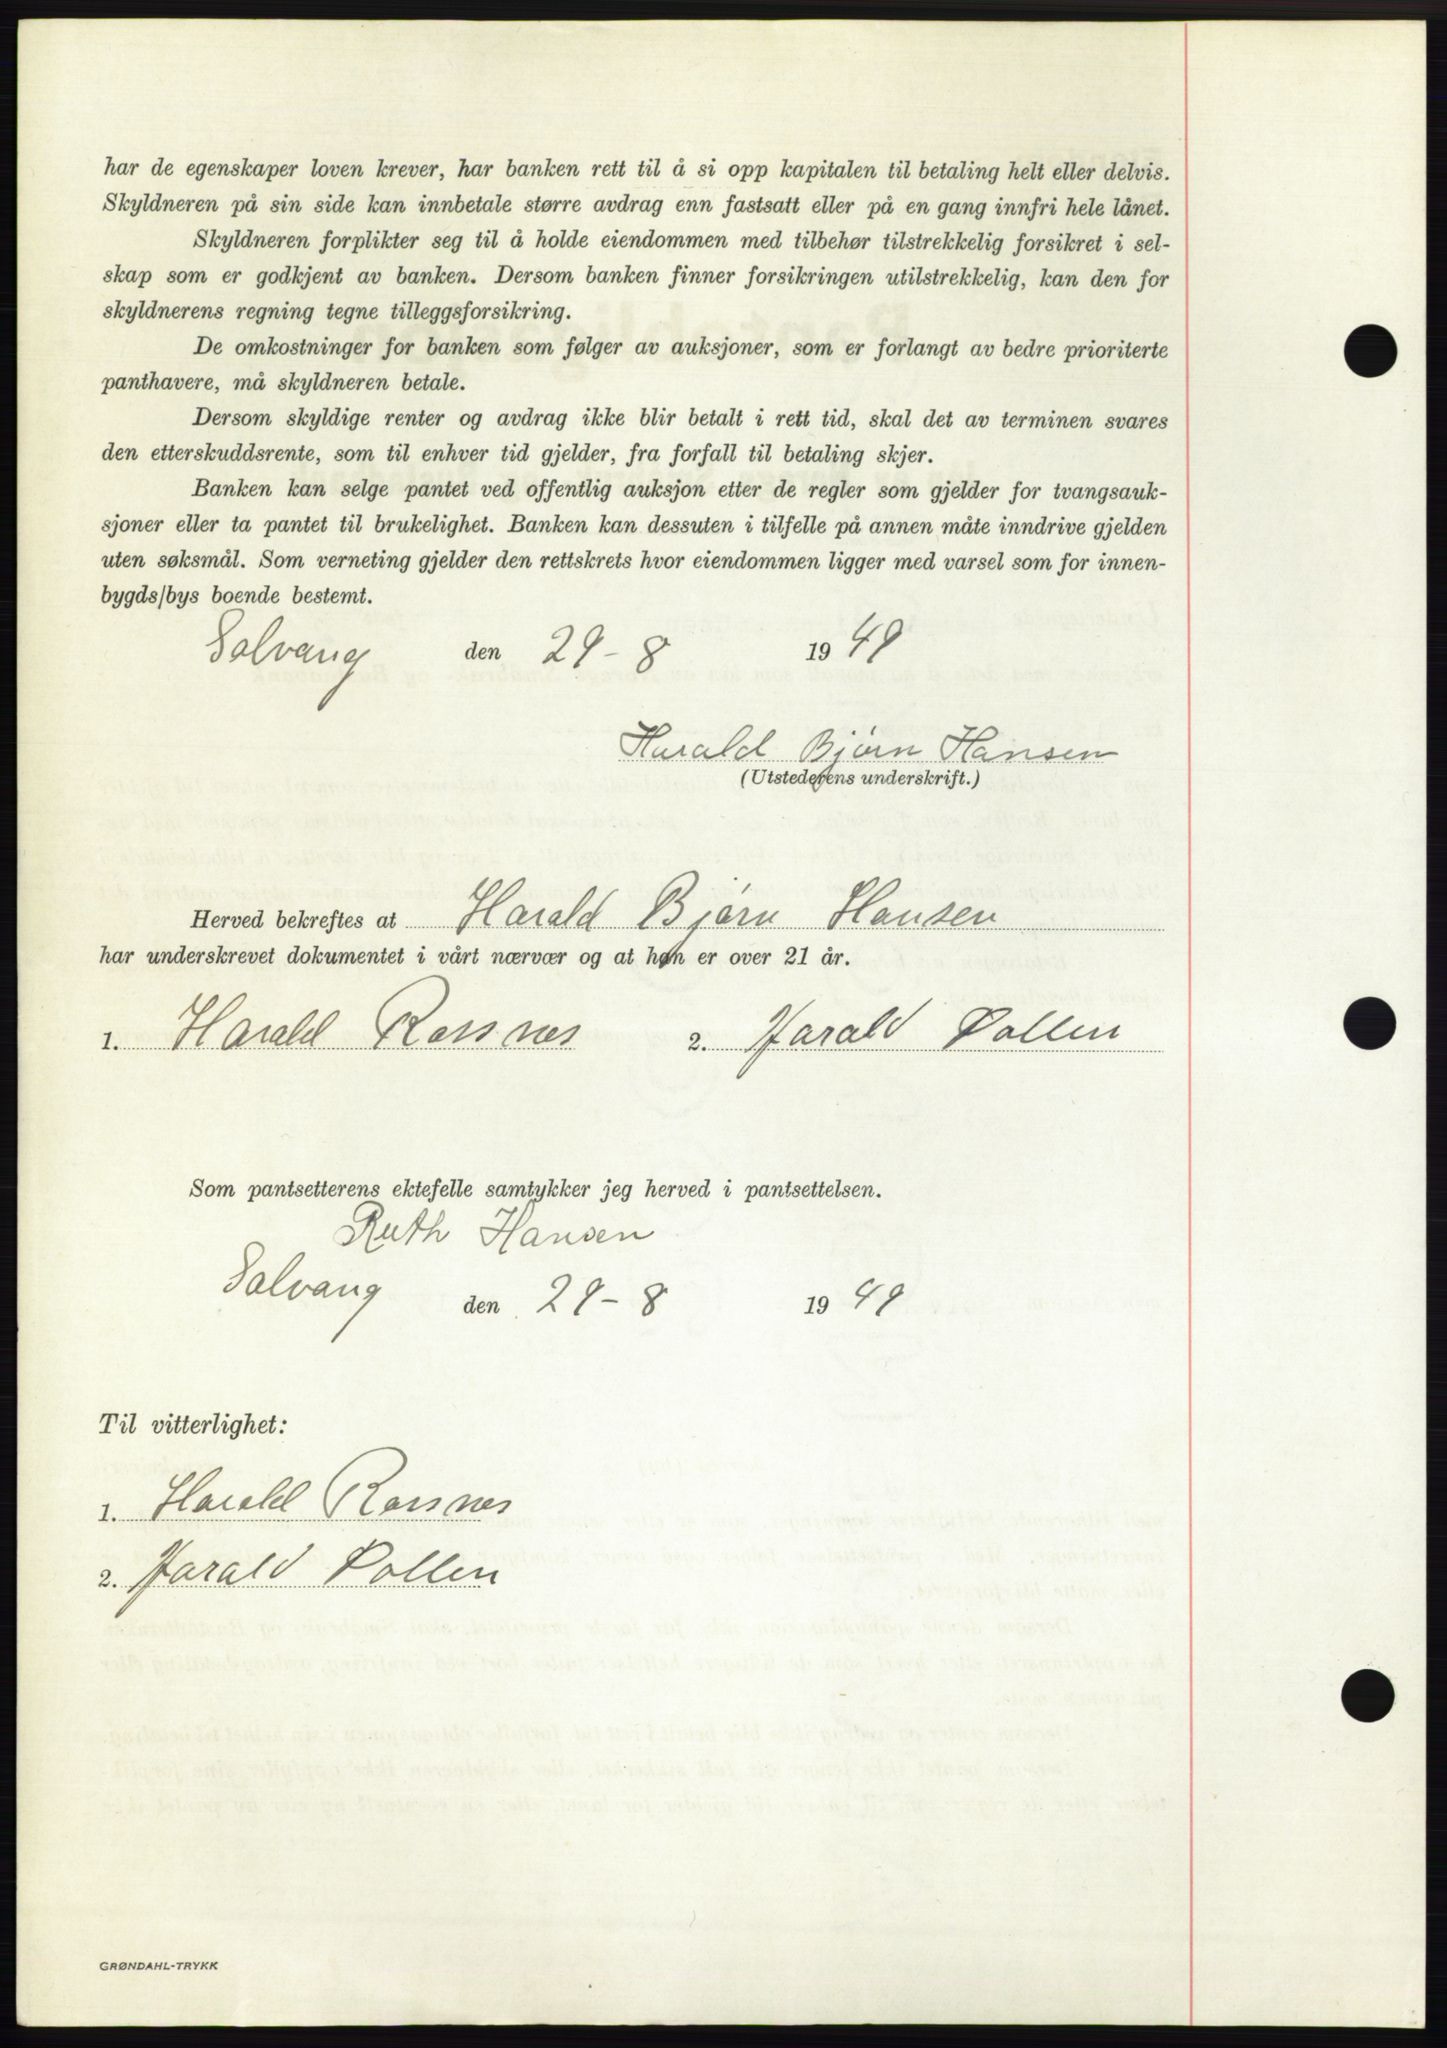 har de egenskaper loven krever, har banken rett til å si opp kapitalen til betaling helt eller delvis.
Skyldneren på sin side kan innbetale større avdrag enn fastsatt eller på en gang innfri hele lånet.
Skyldneren forplikter seg til å holde eiendommen med tilbehør tilstrekkelig forsikret i sel-
skap som er godkjent av banken. Dersom banken finner forsikringen utilstrekkelig, kan den for
skyldnerens regning tegne tilleggsforsikring.
De omkostninger for banken som følger av auksjoner, som er forlangt av bedre prioriterte
panthavere, må skyldneren betale.
Dersom skyldige renter og avdrag ikke blir betalt i rett tid, skal det av terminen svares
den etterskuddsrente, som til enhver tid gjelder, fra forfall til betaling skjer.
Banken kan selge pantet ved offentlig auksjon etter de regler som gjelder for tvangsauk-
sjoner eller ta pantet til brukelighet. Banken kan dessuten i tilfelle på annen måte inndrive gjelden
uten søksmål. Som verneting gjelder den rettskrets hvor eiendommen ligger med varsel som for innen-
bygds/bys boende bestemt.
Solvang den 29-8 1949
Harald Bjørn Hansen
(Utstederens underskrift.)
Herved bekreftes at Harald Bjørn Hansen
har underskrevet dokumentet i vårt nærvær og at han er over 21 år.
1. Harald Rossnes 2. Harald Pollen
Som pantsetterens ektefelle samtykker jeg herved i pantsettelsen.
Ruth Hansen
Solvang den 29-8 1949
Til vitterlighet:
1. Harald Rossnes
2. Harald Pollen
GRØNDAHL-TRYKK